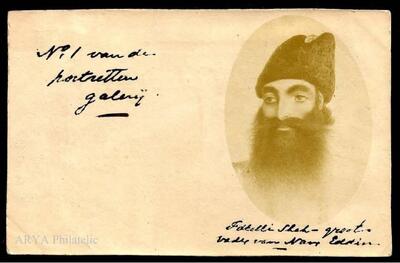 No. 1 van de
portretten
galerij.
Fdelli Shah - groot-
vader van Nasr Eddin.
ARYA Philatelic